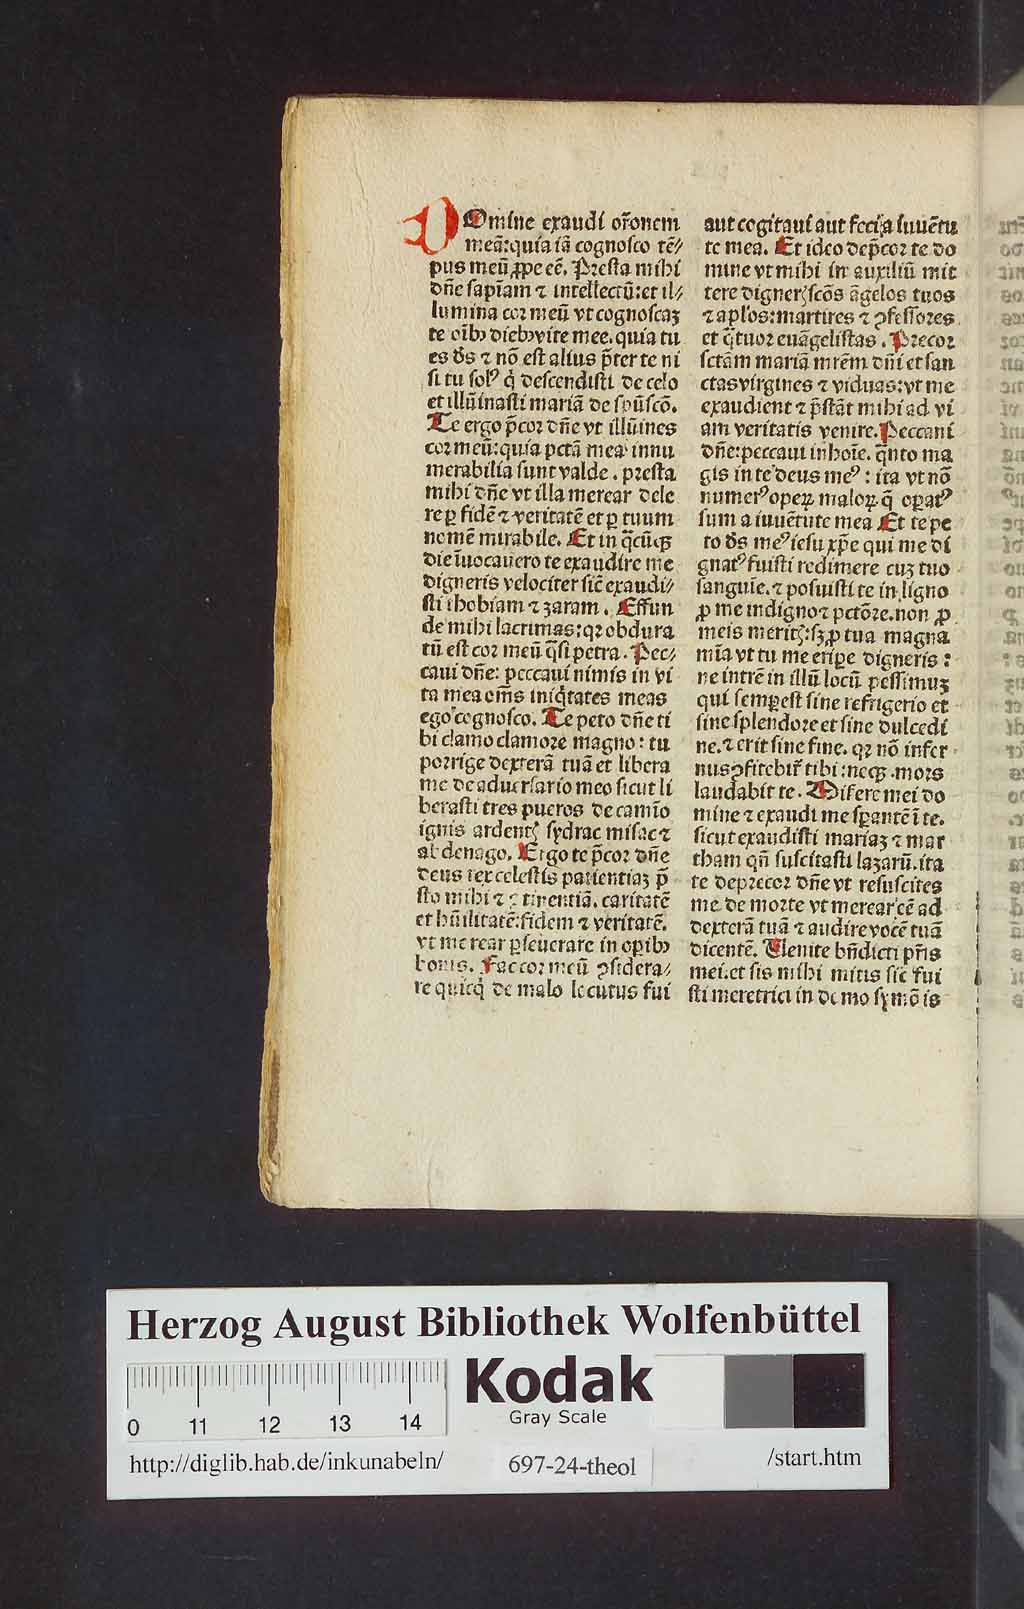 Domine exaudi or̃onem
meã: quia iã cognosco tẽ⸗
pus meũ ꝓpe eẽ. Presta mihi
dñe sapiam ⁊ intellectũ: et il⸗
lumina cor meũ vt cognoscaꝫ
te oĩbꝰ diebꝰ vite mee. quia tu
es ds̃ ⁊ nõ est alius p̃ter te ni
si tu solꝰ q̇ descendisti de celo
et illũinasti mariã de spũscõ.
Te ergo p̃cor dñe vt illũines
cor meũ: quia pctã mea innu
merabilia sunt valde. presta
mihi dñe vt illa merear dele
re ꝑ fidẽ ⁊ veritatẽ et ꝑ tuum
nomẽ mirabile. Et in q̃cũqꝫ
die ĩuocauero te exaudire me
digneris velociter sic̃ exaudi⸗
sti thobiam ⁊ zaram. Effun
de mihi lacrimas: qꝛ obdura
tũ est cor meũ q̃si petra. Pec⸗
caui dñe: peccaui nimis in vi
ta mea om̃s iniq̇tates meas
ego cognosco. Te peto dñe ti
bi clamo clamore magno: tu
porrige dexterã tuã et libera
me de aduersario meo sicut li
berasti tres pueros de camĩo
ignis ardentꝭ sydrac misac ⁊
abdenago. Ergo te p̃cor dñe
deus rex celestis patientiaꝫ p̃
sto mihi ⁊ ꝯtinentiã. caritatẽ
et hũilitatẽ: fidem ⁊ veritatẽ.
vt merear ꝑseuerare in oꝑibꝰ
bonis. Fac cor meũ ꝯsidera⸗
re quicq̇d de malo locutus fui
aut cogitaui aut feci a iuuẽtu
te mea. Et ideo dep̃cor te do
mine vt mihi in auxiliũ mit
tere dignerꝭ scõs ãgelos tuos
⁊ apl'os: martires ⁊ ꝯfessores
et q̃tuor euãgelistas. Precor
sctãm mariã mr̃em dñi et san
ctas virgines ⁊ viduas: vt me
exaudient ⁊ p̃stãt mihi ad vi
am veritatis venire. Peccaui
dñe: peccaui in hoĩe. q̃nto ma
gis in te deus meꝰ: ita vt nõ
numerꝰ operꝝ malorꝝ q̃ oꝑatꝰ
sum a iuuẽtute mea Et te pe
to ds̃ meꝰ iesu xp̃e qui me di
gnatꝰ fuisti redimere cuꝫ tuo
sanguĩe. ⁊ posuisti te in ligno
ꝓ me indigno ⁊ pctõre. non ꝓ
meis meritꝭ: sꝫ ꝓ tua magna
mĩa vt tu me eripe digneris:
ne intrẽ in illũ locũ pessimuꝫ
qui semꝑest sine refrigerio et
sine splendore et sine dulcedi
ne. ⁊ erit sine fine. qꝛ nõ infer
nus ꝯfitebit̃ tibi: neqꝫ mors
laudabit te. Miserere mei do
mine ⁊ exaudi me sꝑantẽ ĩ te.
sicut exaudisti mariaꝫ ⁊ mar
tham qñ suscitasti lazarũ. ita
te deprecor dñe vt resuscites
me de morte vt merear eẽ ad
dexterã tuã ⁊ audire vocẽ tuã
dicentẽ. Uenite bñdicti pr̃is
mei. et sis mihi mitis sic̃ fui
sti meretrici in domo symõis
Herzog August Bibliothek Wolfenbüttel
Kodak
Gray Scale
0 11 12 13 14
http://diglib.hab.de/inkunabeln/
697-24-theol
/start.htm